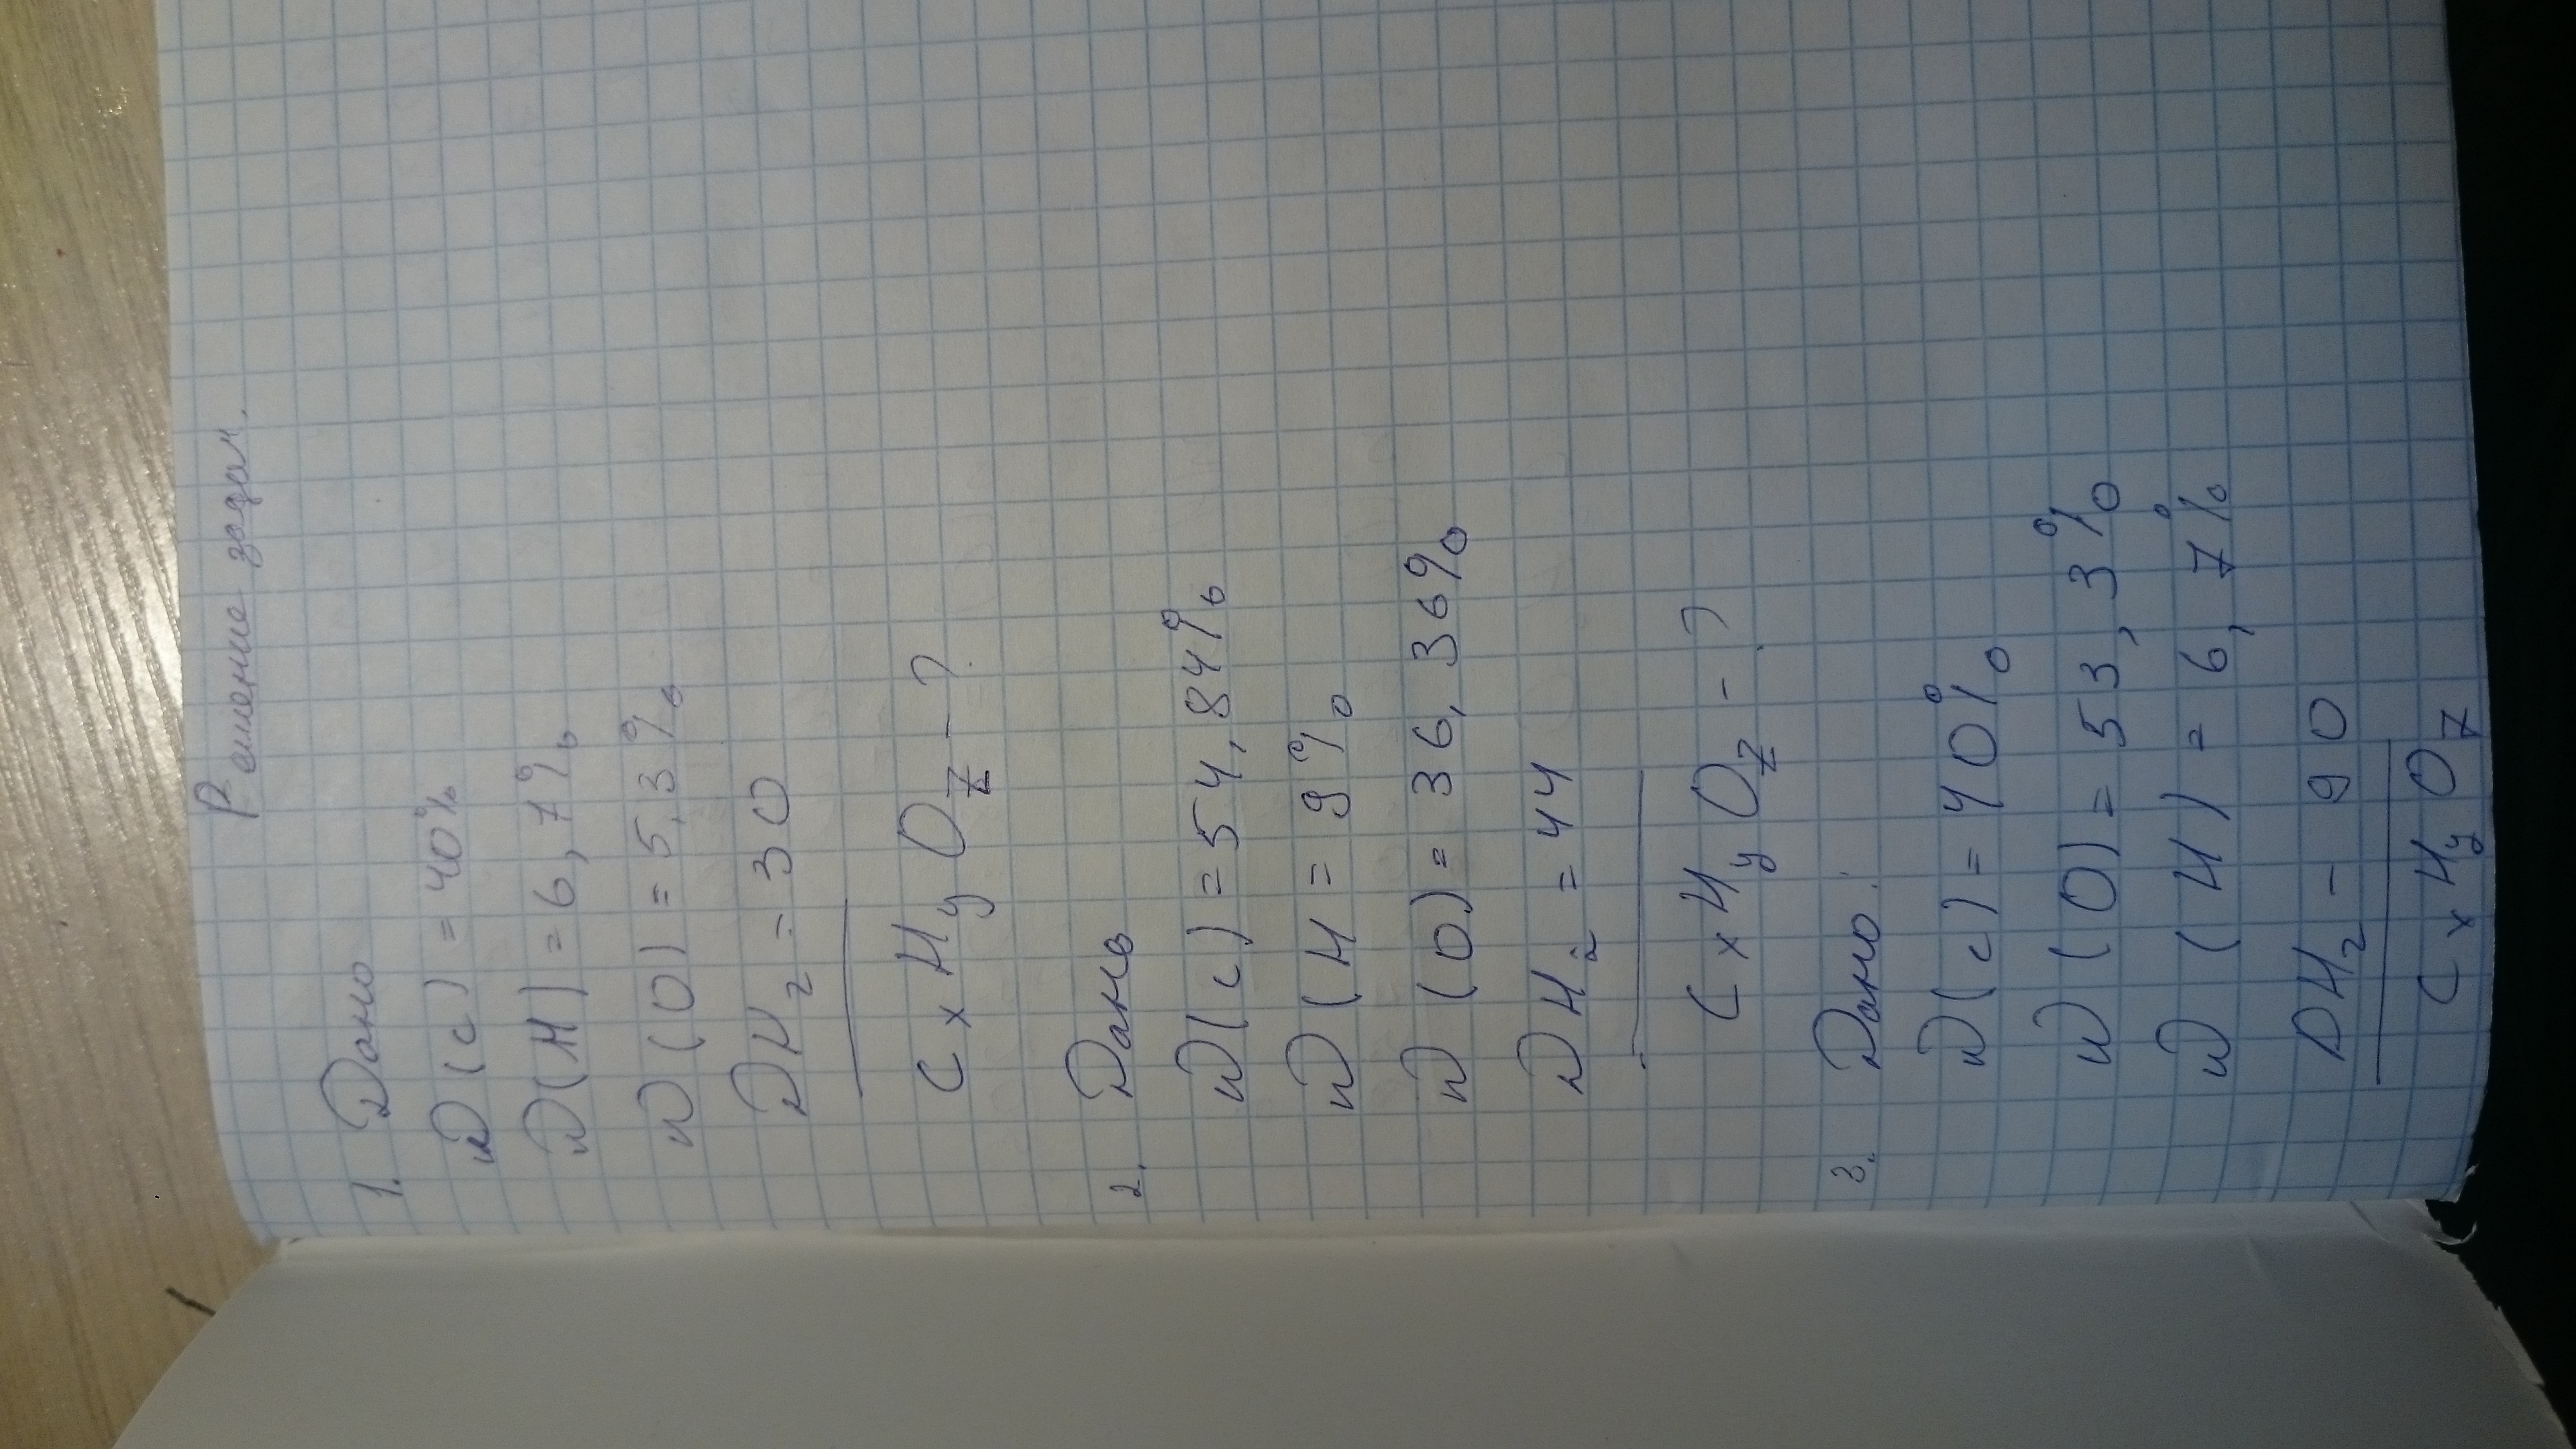 Решение задач.
1. Дано
W(C) = 40%
W(H) = 6,7%
W(O) = 5,3%
DH2 - 30
CxHyOz - ?
2. Дано
W(C) = 54,84%
W(H = 9%
W(O) = 36,36%
DH2 = 44
CxHyOz - ?
3. Дано:
W(C) = 40%
W(O) = 53,3%
W(H) = 6,7%
DH2 - 90
CxHyOz